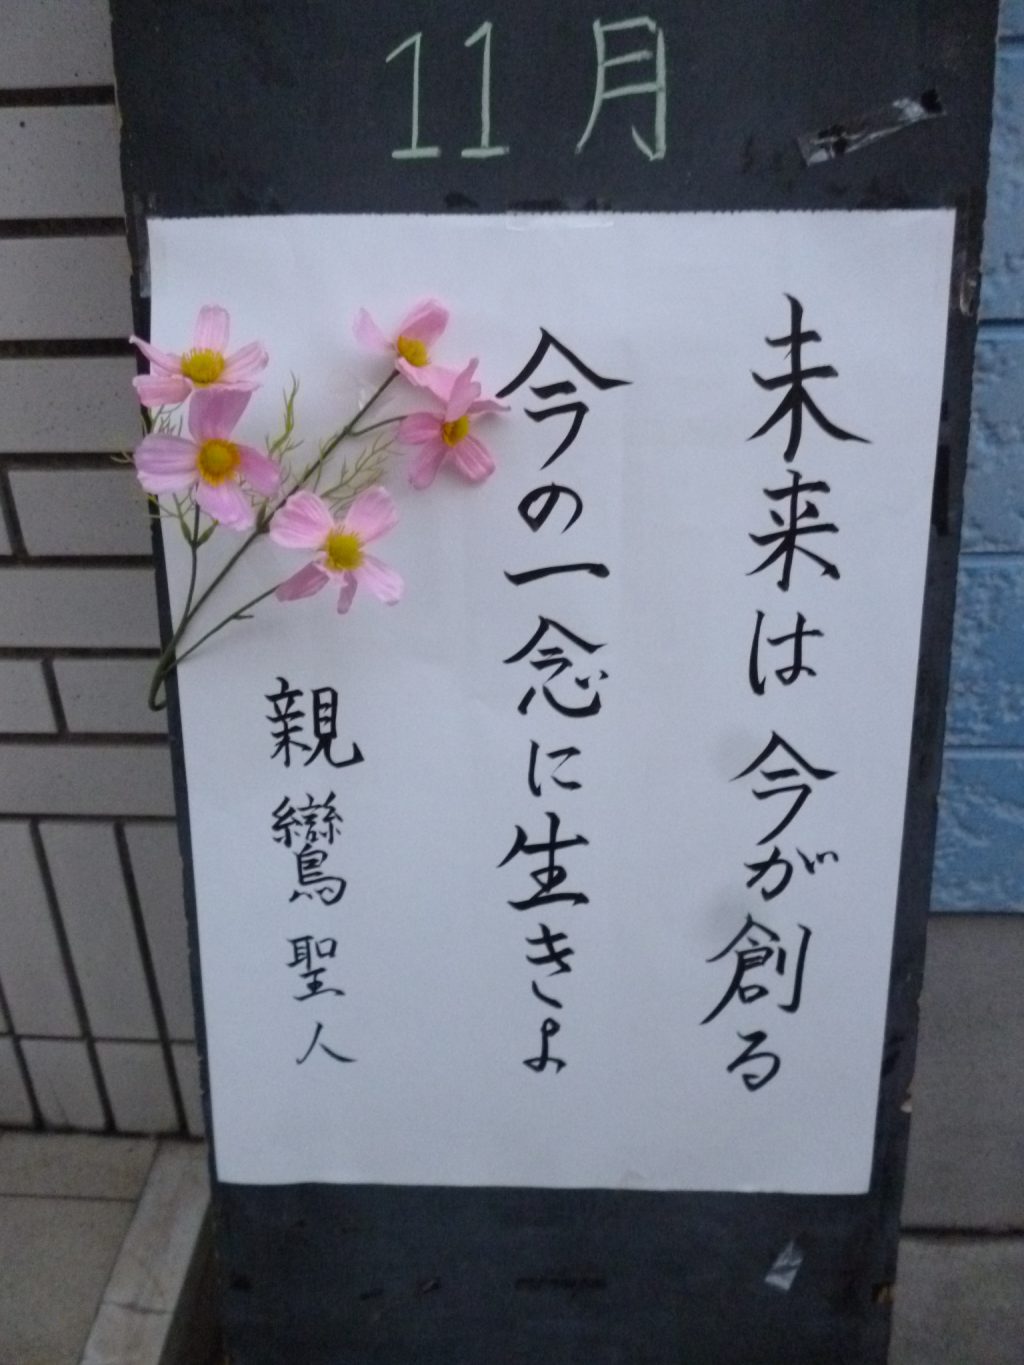 11月
未来は今が創る
今の一念に生きよ
親鸞聖人